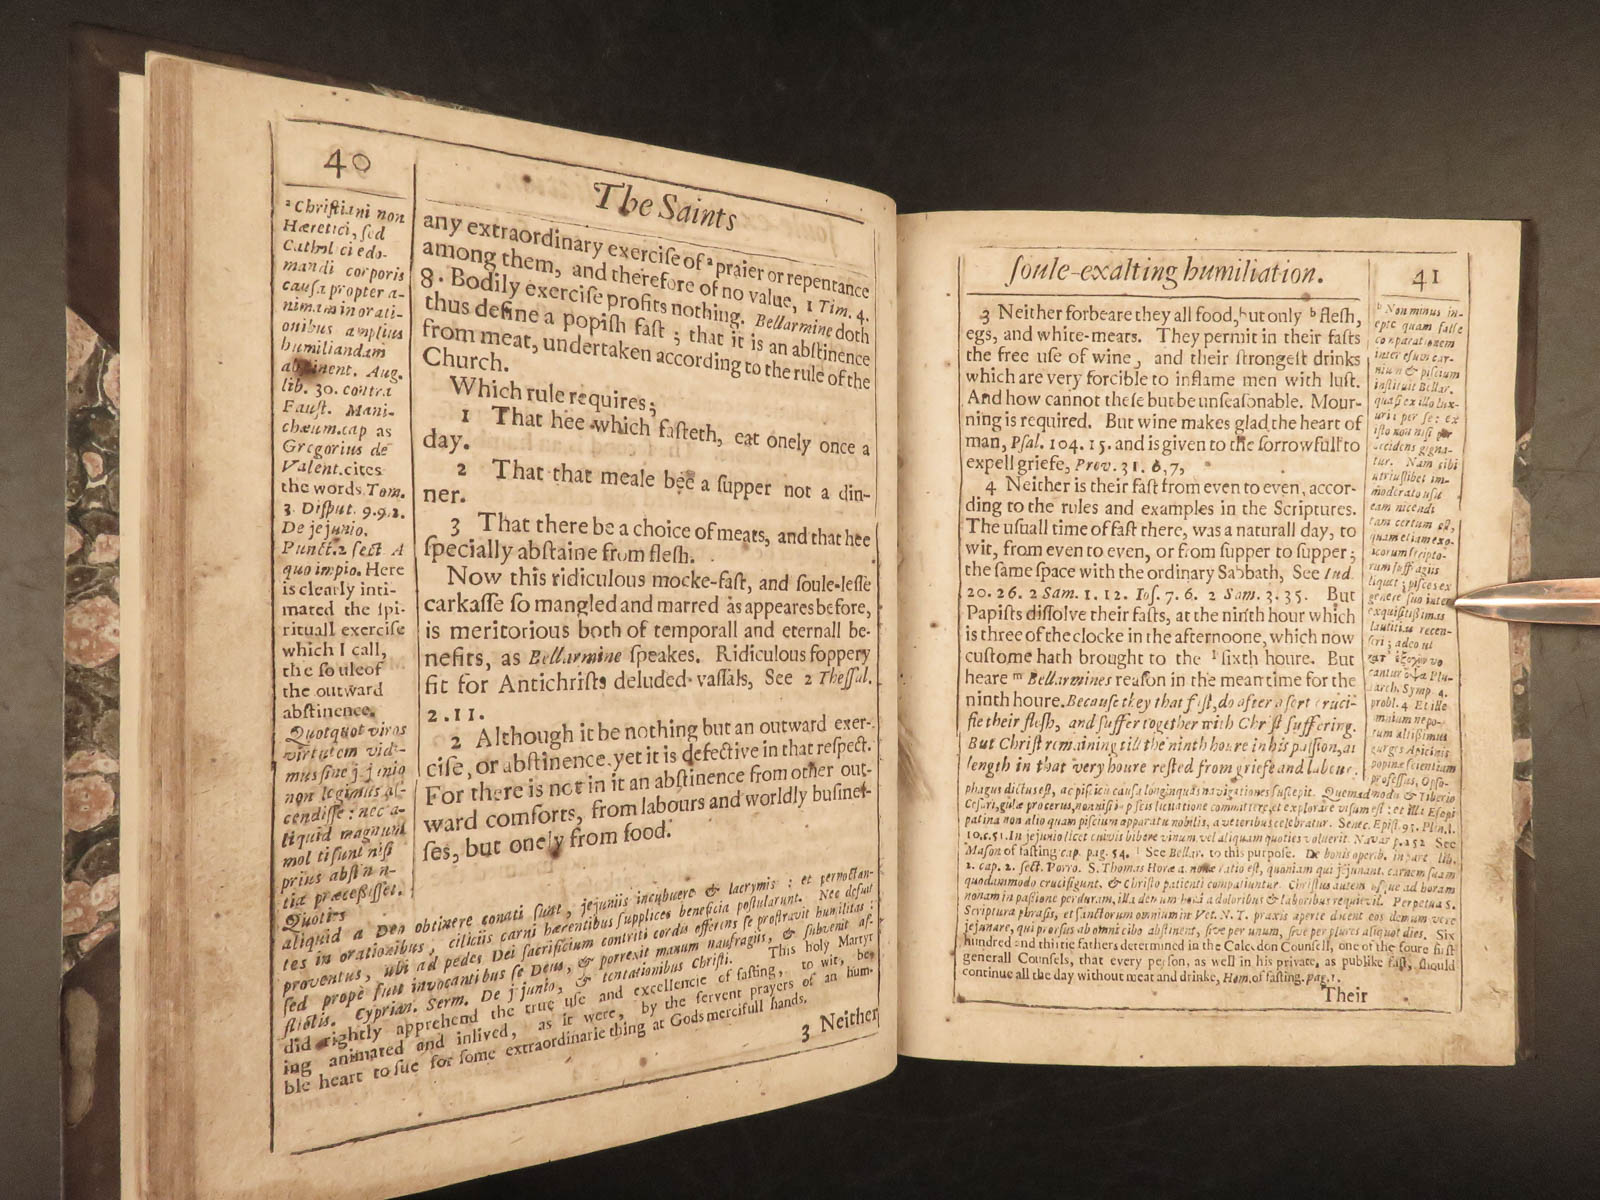 40
The Saints
ᵃ Chriſtiani non
Hæretici, ſed
Catholici edo-
mandi corporis
cauſa propter a-
nimam in orati-
onibus amplius
humiliandam
abſtinent. Aug.
lib. 30. contra
Fauſt. Mani-
chæum.cap as
Gregorius de
Valent.cites
the words.Tom.
3. Diſput. 9.9.2.
De jejunio.
Punct.2 ſect A
quo impio. Here
is clearly inti-
mated the ſpi-
rituall exerciſe
which I call,
the ſoule of
the outward
abſtinence.
Quotquot viros
virtutem vidi-
mus ſine jejunio
non legimus aſ-
cendiſſe: nec a-
liquid magnum
moliti ſunt niſi
prius abſtinen-
tia præceſſiſſet.
Quoties
any extraordinary exerciſe of ᵃ praier or repentance
among them, and therefore of no value, 1 Tim. 4.
8. Bodily exerciſe profits nothing. Bellarmine doth
thus define a popiſh faſt ; that it is an abſtinence
from meat, undertaken according to the rule of the
Church.
Which rule requires;
1 That hee which faſteth, eat onely once a
day.
2 That that meale bee a ſupper not a din-
ner.
3 That there be a choice of meats, and that hee
ſpecially abſtaine from fleſh.
Now this ridiculous mocke-faſt, and ſoule-leſſe
carkaſſe ſo mangled and marred as appeares before,
is meritorious both of temporall and eternall be-
nefits, as Bellarmine ſpeakes. Ridiculous foppery
fit for Antichriſts deluded vaſſals, See 2 Theſſal.
2.11.
2 Although it be nothing but an outward exer-
ciſe, or abſtinence, yet it is defective in that reſpect.
For there is not in it an abſtinence from other out-
ward comforts, from labours and worldly buſineſ-
ſes, but onely from food.
aliquid a Deo obtinere conati ſunt, jejuniis incubuere & lacrymis : et pernoctan-
tes in orationibus, ciliciis carni hærentibus ſupplices beneficia poſtularunt. Nec defuit
proventus, ubi ad pedes Dei ſacrificium contriti cordis offerens ſe proſtravit humilitas :
ſed prope fuit invocantibus ſe Deus, & porrexit manum naufragis, & ſubvenit af-
flictis. Cyprian. Serm. De jejunio, & tentationibus Chriſti. This holy Martyr
did rightly apprehend the true uſe and excellencie of faſting, to wit, be-
ing animated and inlived, as it were, by the fervent prayers of an hum-
ble heart to ſue for ſome extraordinarie thing at Gods mercifull hands.
3 Neither
ſoule-exalting humiliation.
41
3 Neither forbeare they all food, but only ᵇ fleſh,
egs, and white-meats. They permit in their faſts
the free uſe of wine, and their ſtrongeſt drinks
which are very forcible to inflame men with luſt.
And how cannot theſe but be unſeaſonable. Mour-
ning is required. But wine makes glad the heart of
man, Pſal. 104. 15. and is given to the ſorrowfull to
expell griefe, Prov. 31. 6, 7,
4 Neither is their faſt from even to even, accor-
ding to the rules and examples in the Scriptures.
The uſuall time of faſt there, was a naturall day, to
wit, from even to even, or from ſupper to ſupper;
the ſame ſpace with the ordinary Sabbath, See Iud.
20. 26. 2 Sam. 1. 12. Ioſ. 7. 6. 2 Sam. 3. 35. But
Papiſts diſſolve their faſts, at the ninth hour which
is three of the clocke in the afternoone, which now
cuſtome hath brought to the ˡ ſixth houre. But
heare ᵐ Bellarmines reaſon in the mean time for the
ninth houre. Becauſe they that faſt, do after a ſort cruci-
fie their fleſh, and ſuffer together with Chriſt ſuffering.
But Chriſt remaining till the ninth houre in his paſſion, at
length in that very houre reſted from griefe and labour.
ᵇ Non minus in-
epte quam falſe
comparationem
inter eſum car-
nium & piſcium
inſtituit Bellar.
quaſi ex illo lux-
uria per ſe: ex
iſto non niſi per
accidens gigna-
tur. Nam cibi
utriuſlibet im-
moderato uſu
eam incendi
tam certum eſt,
quam etiam ex
liquet ; piſces ex
genere ſuo inter
exquiſitiſſimas
lautitias recen-
ſeri ; adeo ut
probl. 4 Et ille
profeſſus, Opſo-
phagus dictus eſt, ac piſcium cauſa longinquas navigationes ſuſcepit. Quemadmodum & Tiberio
patina non alio quam piſcium apparatu nobilis, a veteribus celebratur. Senec. Epiſt. 95. Plin. l.
10.c.51. In jejunio licet cuivis bibere vinum, vel aliquam quoties voluerit. Navar p.252 See
Maſon of faſting cap. pag. 54. ˡ See Bellar. to this purpoſe. De bonis operib. in part. lib.
2. cap. 2. ſect. Porro. S. Thomas Horæ nonæ ratio eſt, quoniam qui jejunant, carnem ſuam
quodammodo crucifigunt, & Chriſto patienti compatiuntur. Chriſtus autem uſque ad horam
nonam in paſſione perduram, illa demum hora a doloribus & laboribus requievit. Perpetua S.
Scripturæ phraſis, et ſanctorum omnium in Vet. N. T. praxis aperte docent eos demum vere
jejunare, qui prorſus ab omni cibo abſtinent, ſive per unum, ſive per plures aliquot dies. Six
hundred and thirtie fathers determined in the Calcedon Counſell, one of the foure firſt
generall Counſels, that every perſon, as well in his private, as publike faſt, ſhould
continue all the day without meat and drinke, Hom. of faſting. pag. 1.
Their